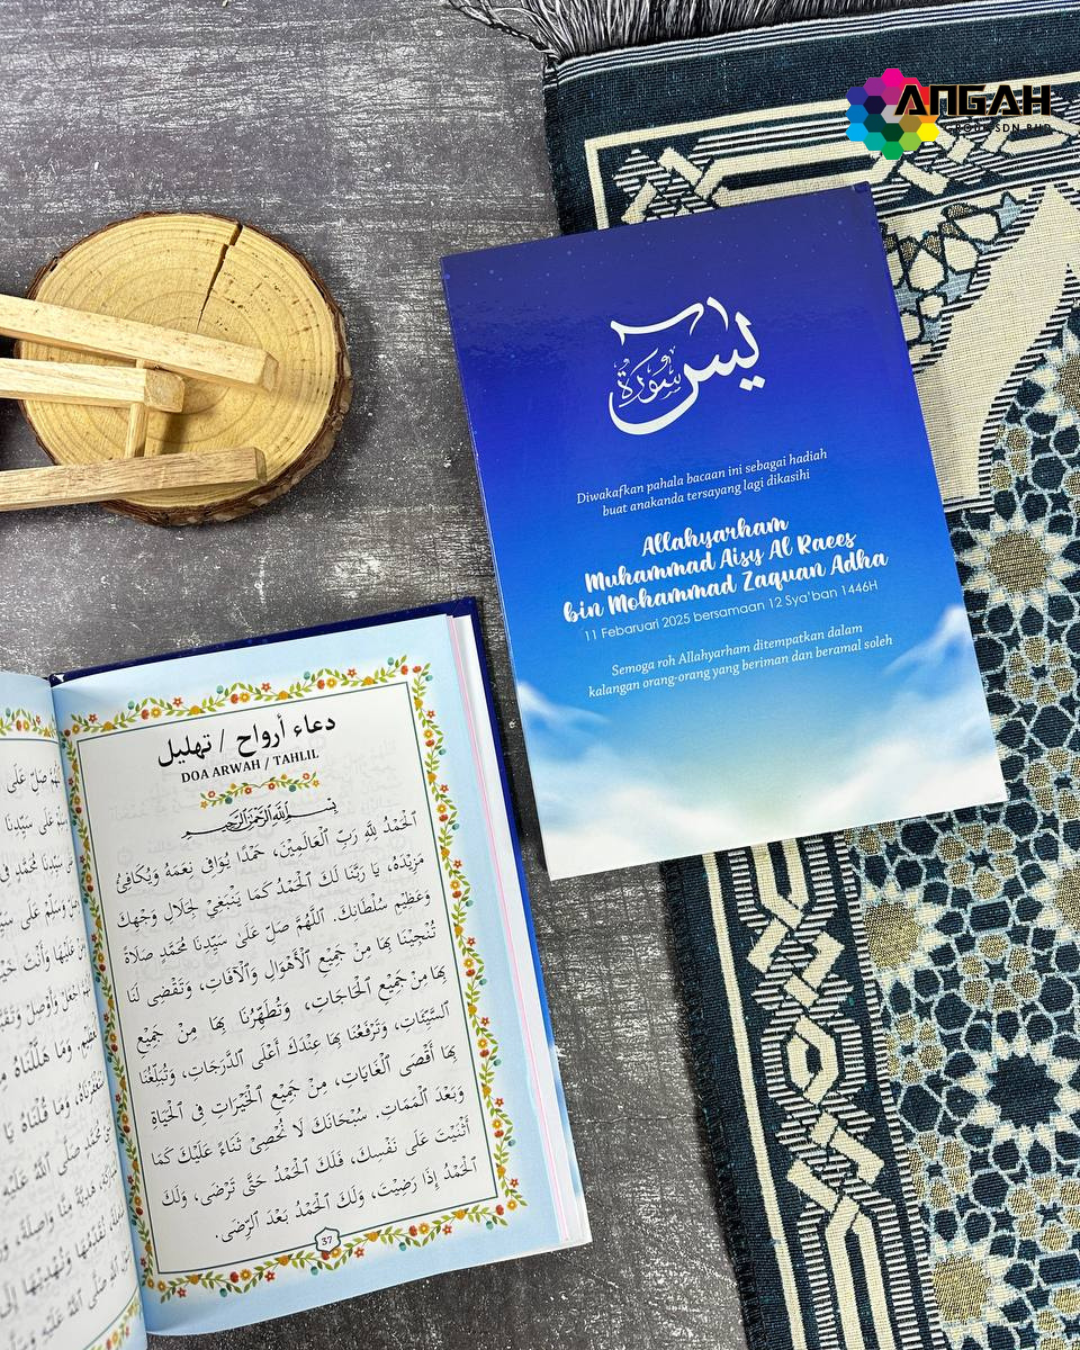 ANGAH
SDN BHD
يس
سورة
Diwakafkan pahala bacaan ini sebagai hadiah
buat anakanda tersayang lagi dikasihi
Allahyarham
Muhammad Aisy Al Raees
bin Mohammad Zaquan Adha
11 Febaruari 2025 bersamaan 12 Sya'ban 1446H
Semoga roh Allahyarham ditempatkan dalam
kalangan orang-orang yang beriman dan beramal soleh
دعاء أرواح / تهليل
DOA ARWAH / TAHLIL
بِسْمِ اللَّهِ الرَّحْمَنِ الرَّحِيمِ
اَلْحَمْدُ لِلَّهِ رَبِّ ٱلْعَالَمِيْنَ، حَمْدًا يُوَافِى نِعَمَهُ وَيُكَافِئُ
مَزِيْدَهُ، يَا رَبَّنَا لَكَ ٱلْحَمْدُ كَمَا يَنْبَغِيْ لِجَلَالِ وَجْهِكَ
وَعَظِيْمِ سُلْطَانِكَ. اَللَّهُمَّ صَلِّ عَلَىٰ سَيِّدِنَا مُحَمَّدٍ صَلَاةً
تُنْجِيْنَا بِهَا مِنْ جَمِيْعِ ٱلْأَهْوَالِ وَٱلْآفَاتِ، وَتَقْضِى لَنَا
بِهَا مِنْ جَمِيْعِ ٱلْحَاجَاتِ، وَتُطَهِّرُنَا بِهَا مِنْ جَمِيْعِ
ٱلسَّيِّئَاتِ، وَتَرْفَعُنَا بِهَا عِنْدَكَ أَعْلَى ٱلدَّرَجَاتِ، وَتُبَلِّغُنَا
بِهَا أَقْصَى ٱلْغَايَاتِ، مِنْ جَمِيْعِ ٱلْخَيْرَاتِ فِى ٱلْحَيَاةِ
وَبَعْدَ ٱلْمَمَاتِ. سُبْحَانَكَ لَا نُحْصِىْ ثَنَاءً عَلَيْكَ كَمَا
أَثْنَيْتَ عَلَى نَفْسِكَ، فَلَكَ ٱلْحَمْدُ حَتَّى تَرْضَى، وَلَكَ
ٱلْحَمْدُ إِذَا رَضِيْتَ، وَلَكَ ٱلْحَمْدُ بَعْدَ ٱلرِّضَى.
37